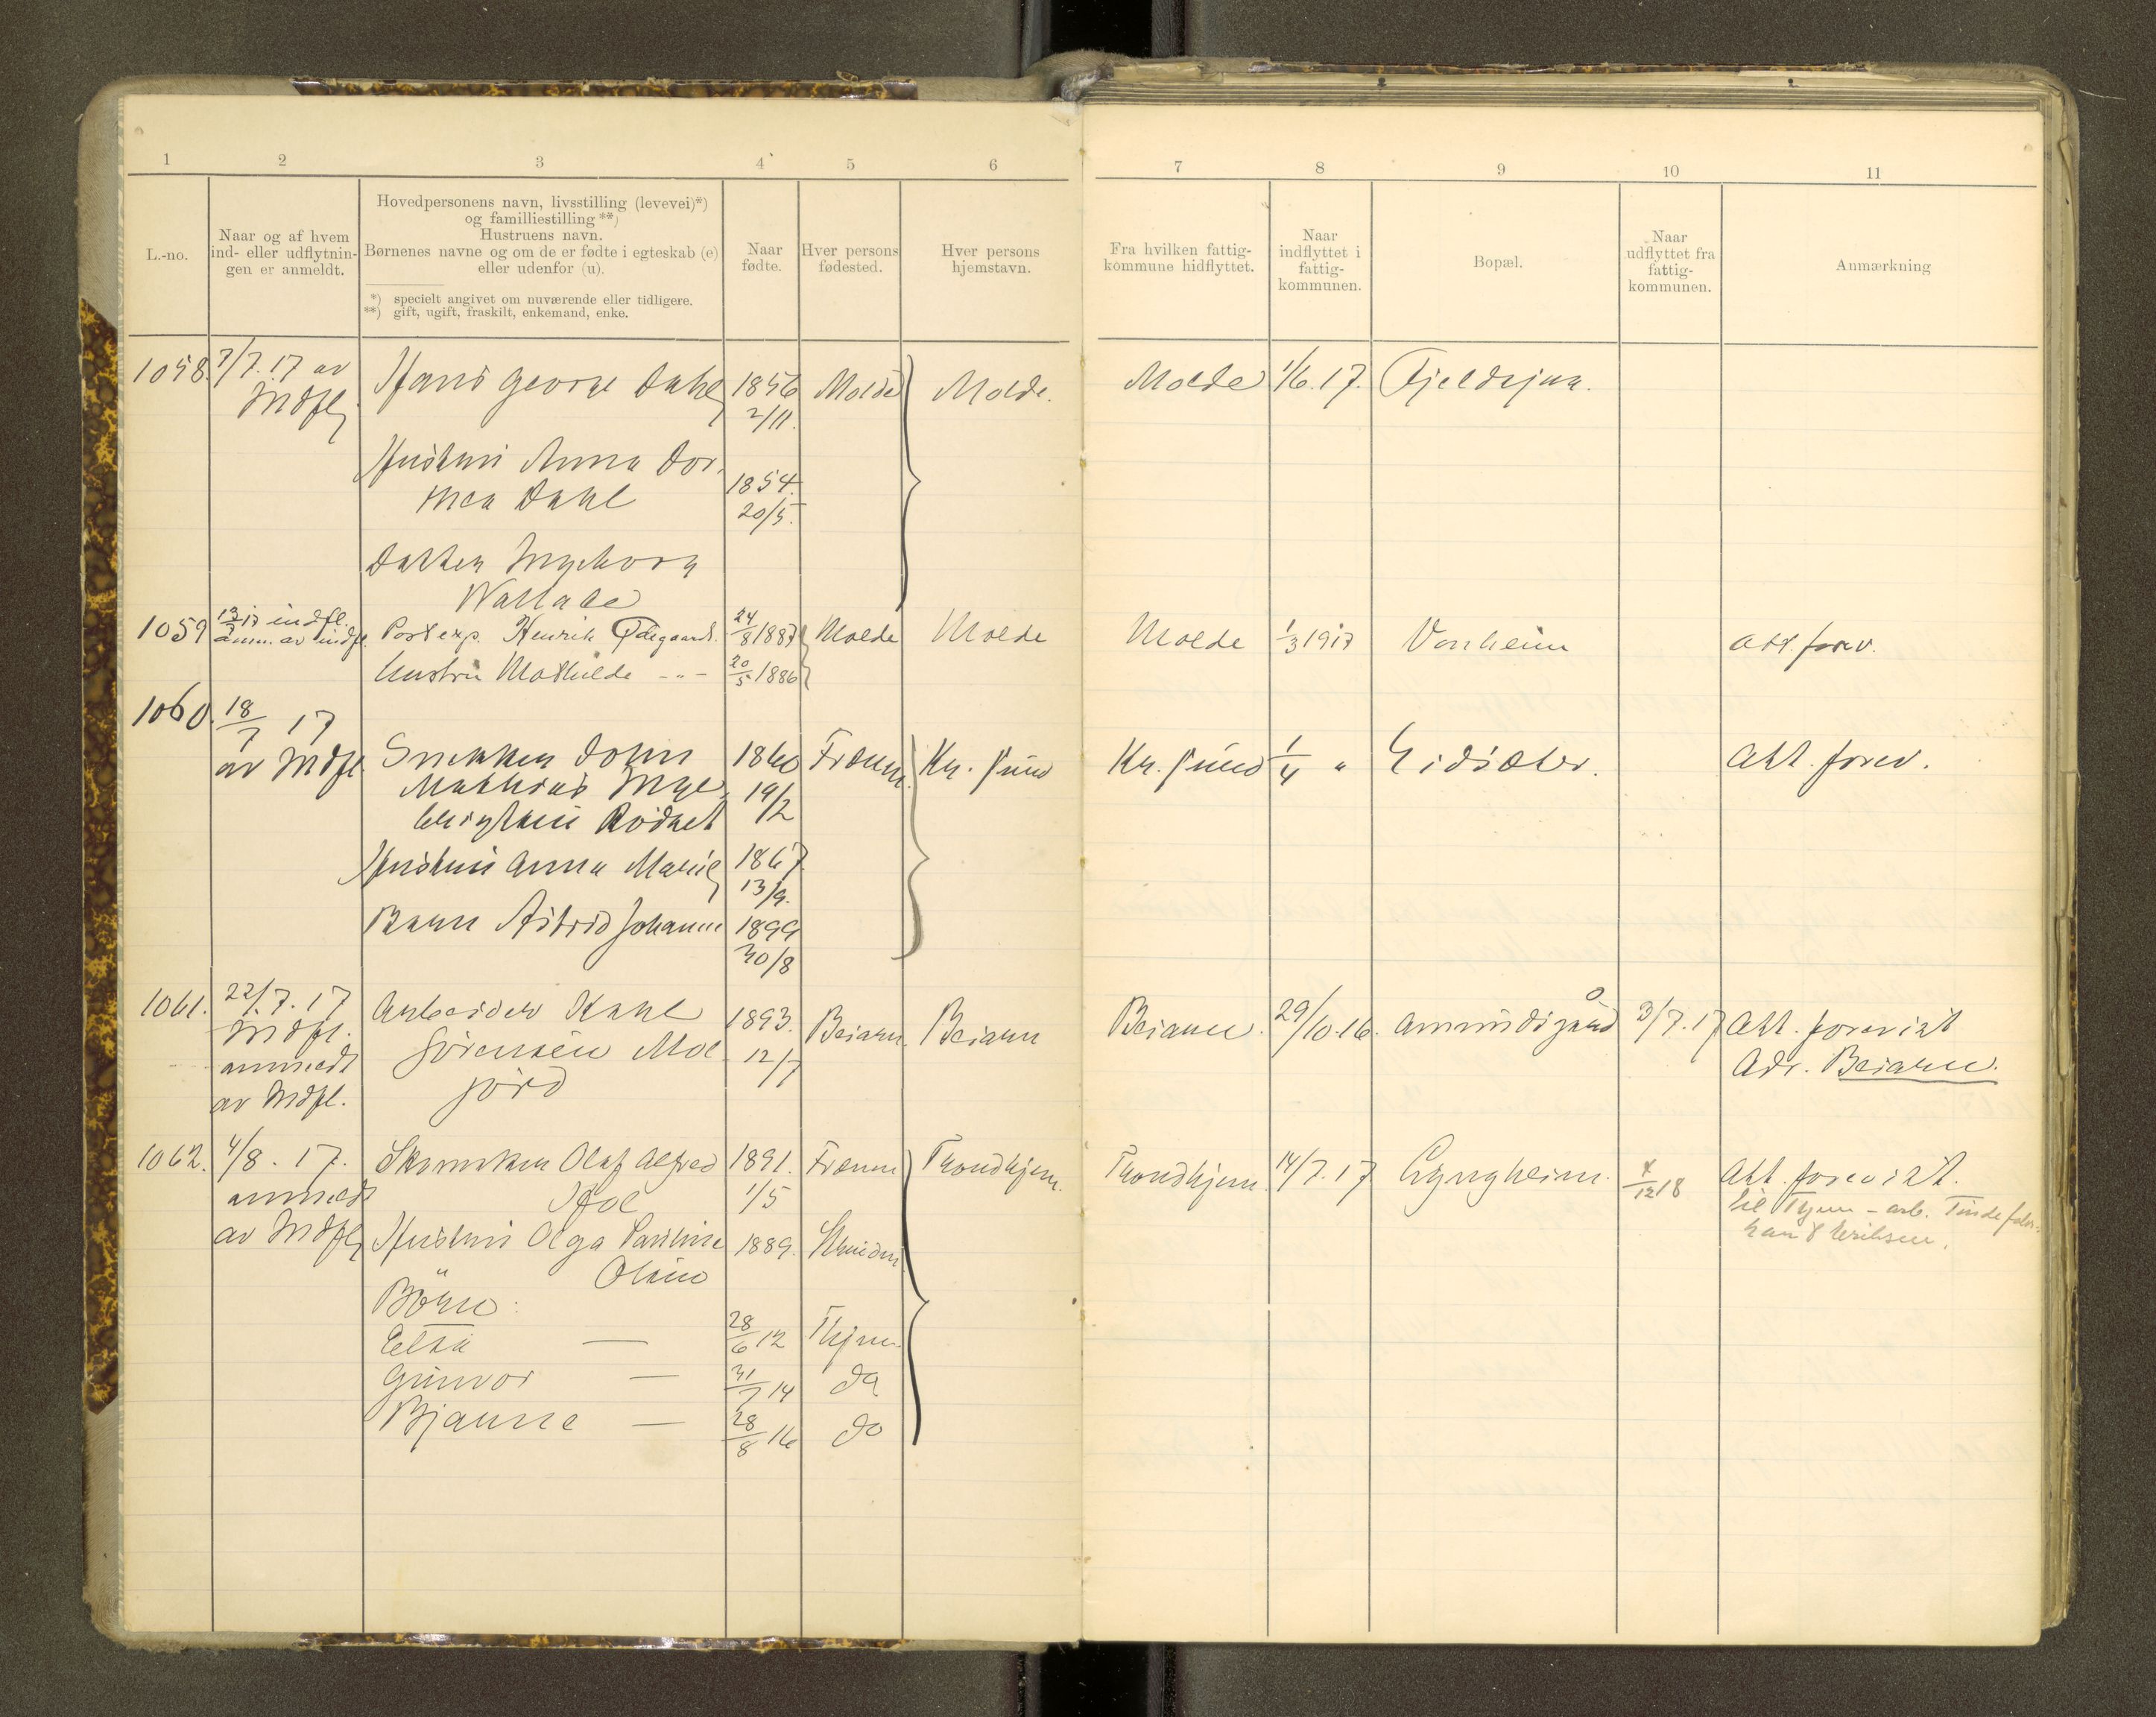 1 2 3 4 5 6 7 8 9 10 11
L.-no.
Naar og af hvem
ind- eller udflytnin-
gen er anmeldt.
Hovedpersonens navn, livsstilling (levevei)*)
og familliestilling **)
Hustruens navn.
Børnenes navne og om de er fødte i egteskab (e)
eller udenfor (u).
*) specielt angivet om nuværende eller tidligere.
**) gift, ugift, fraskilt, enkemand, enke.
Naar
fødte.
Hver persons
fødested.
Hver persons
hjemstavn.
Fra hvilken fattig-
kommune hidflyttet.
Naar
indflyttet i
fattig-
kommunen.
Bopæl.
Naar
udflyttet fra
fattig-
kommunen.
Anmærkning
1058. 7/7.17 av Hans George Dahl 1856 Molde Molde. Molde 1/6.17.
Indfl. 2/11.
Hustru Anna Dor
thea Dahl 1854.
20/5.
Datter Ingeborg
1059 13/7 17 indfl. Postexp. Henrik Ødegaard. 24/8 1887 Molde Molde Molde 1/3 1917 Vonheim Att. forev.
anm. av indfl. Hustru Mathilde -"- 20/5 1886
1060. 18/7 17
av Indfl. Snekker John 1860 Fræna. Kr. sund Kr. sund 1/4 " Eidsæter. Att. forev.
Mathias Inge 19/2
brigtsen Rødset
Hustru Anna Marie 1867
13/9.
Barn Astrid Johanne 1899
30/8
1061. 22/7.17 Arbeider Karl 1893. Beiarn. Beiarn Beiarn. 29/10.16. Amundsgård 3/7.17 Att. forevist
Indfl. Sørensen Mol 12/7 Adr. Beiarn.
anmeldt jord
av Indfl.
1062. 4/8.17. Skomaker Olaf Alfred 1891. Fræna Trondhjem. Trondhjem. 14/7.17 Lyngheim. 4/12 18 Att. forevist.
anmeldt Hol 1/5 til Thjem - arb. Tinde
av Indfl. Hustru Olga Pauline 1889. Eriksen.
Børn:
Elsa — 28/6 12 Thjem
Gunvor — 31/7 14 do
Bjarne — 28/8 16 do